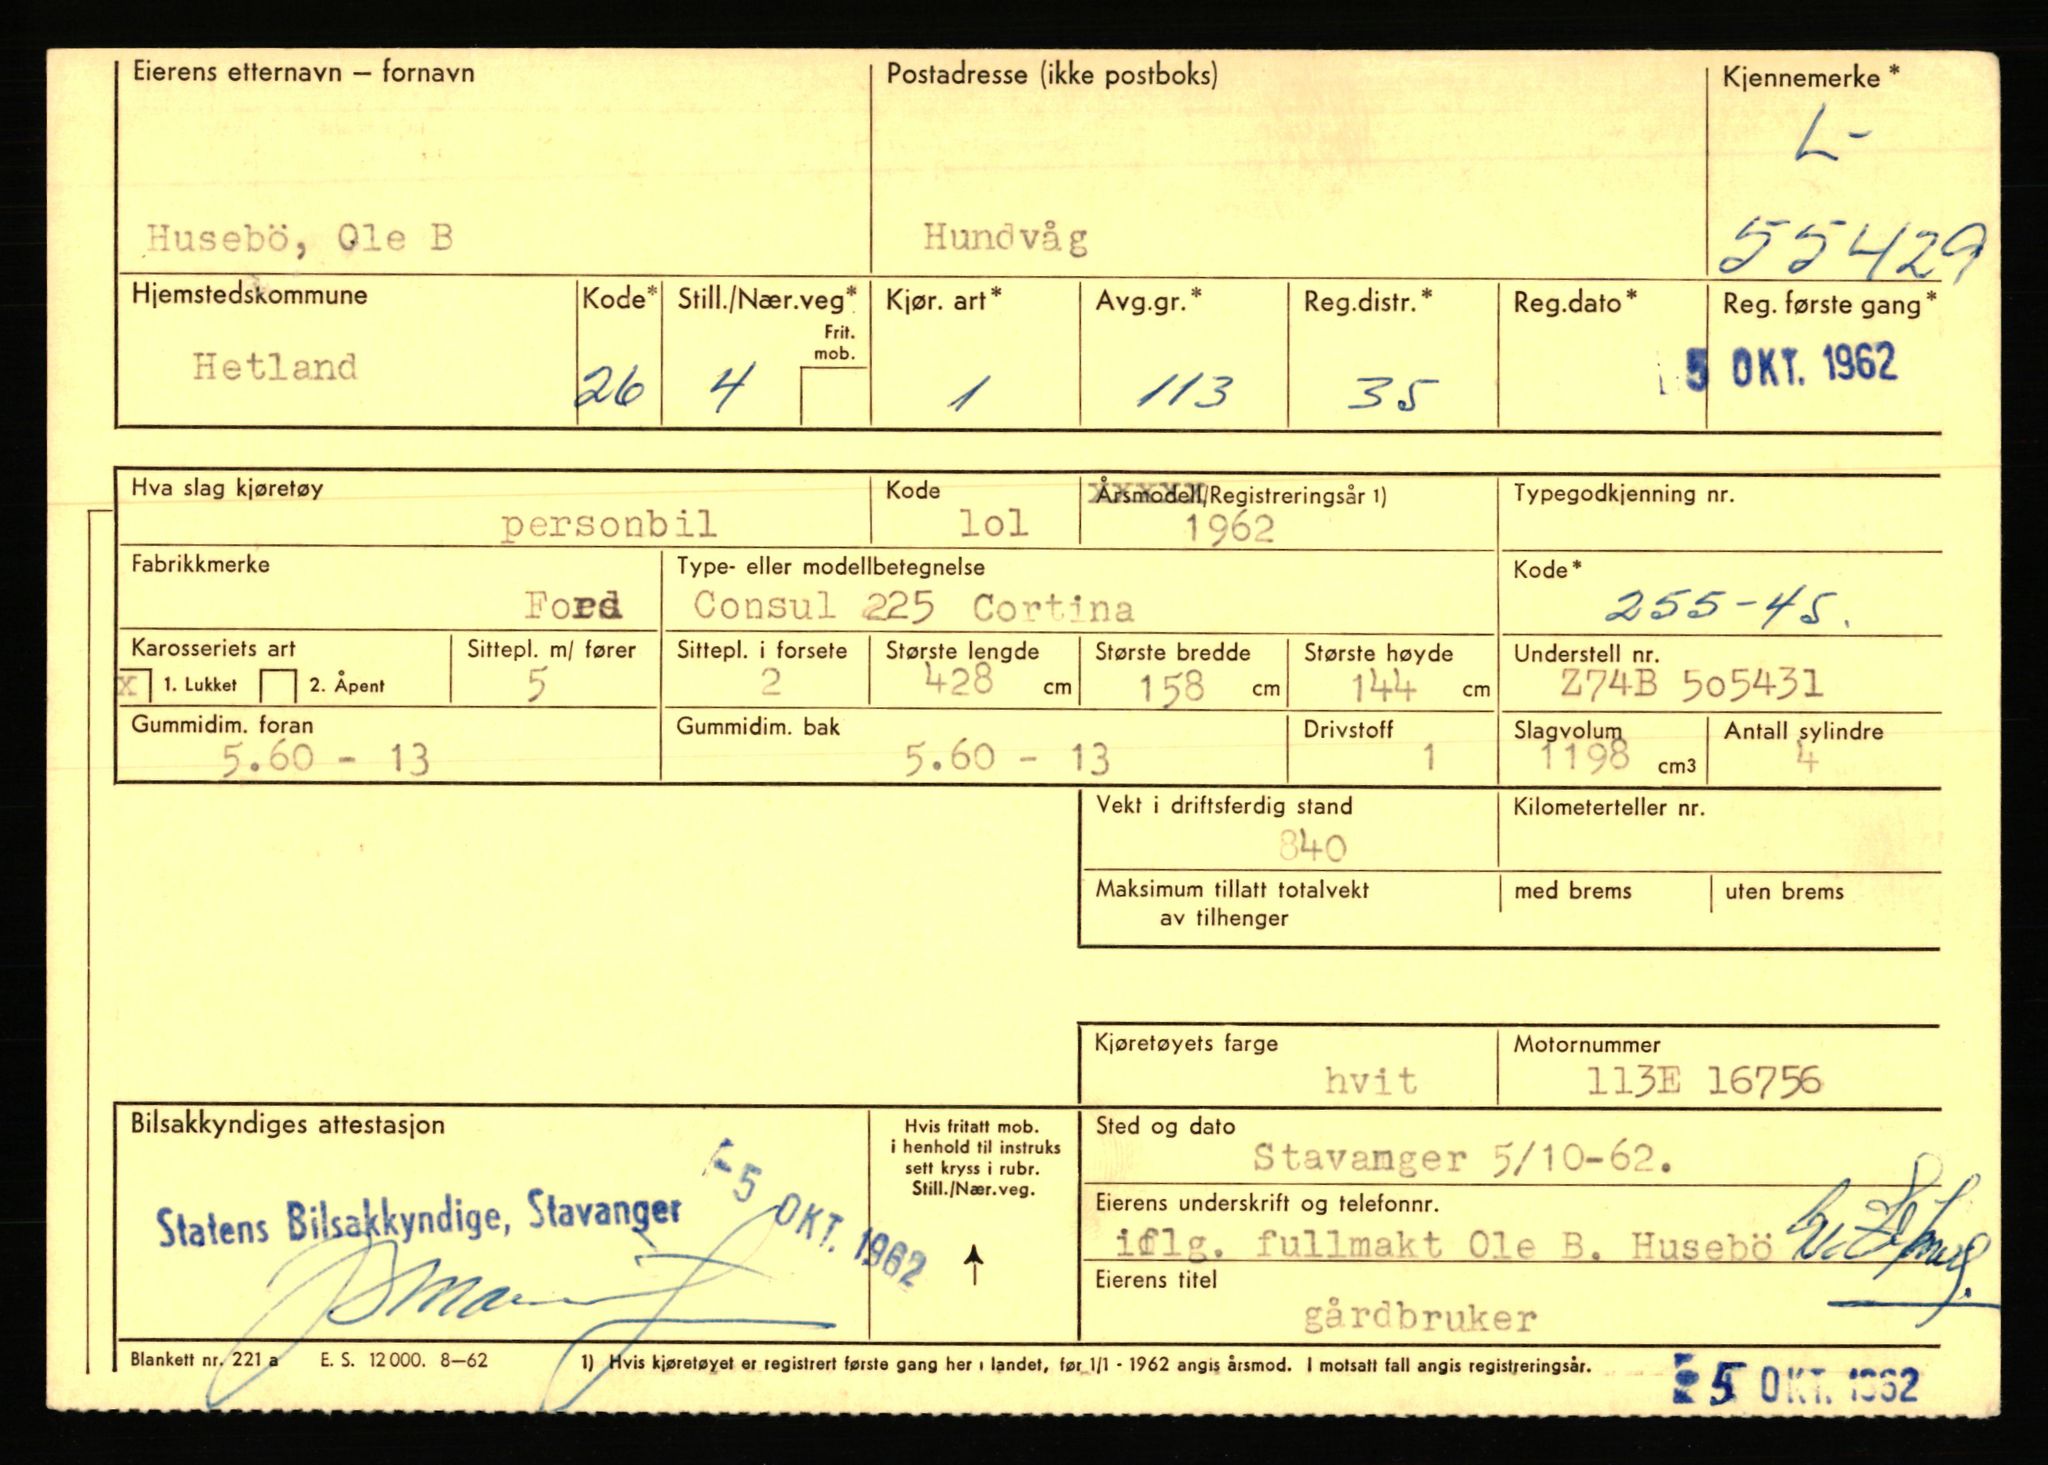 Eierens etternavn – fornavn Postadresse (ikke postboks) Kjennemerke*
L-
Husebö, Ole B Hundvåg 55429
Hjemstedskommune Kode* Still./Nær.veg* Kjør. art* Avg.gr.* Reg.distr.* Reg.dato* Reg. første gang*
Frit.
mob.
Hetland 26 4 1 113 35 5 OKT. 1962
Hva slag kjøretøy Kode Årsmodell/Registreringsår 1) Typegodkjenning nr.
personbil lol 1962
Fabrikkmerke Type- eller modellbetegnelse Kode*
Ford Consul 225 Cortina 255-45.
Karosseriets art Sittepl. m/ fører Sittepl. i forsete Største lengde Største bredde Største høyde Understell nr.
x 1. Lukket 2. Åpent 5 2 428 cm 158 cm 144 cm Z74B 505431
Gummidim. foran Gummidim. bak Drivstoff Slagvolum Antall sylindre
5.60 - 13 5.60 - 13 1 1198 cm3 4
Vekt i driftsferdig stand Kilometerteller nr.
840
Maksimum tillatt totalvekt med brems uten brems
av tilhenger
Kjøretøyets farge Motornummer
hvit 113E 16756
Bilsakkyndiges attestasjon Hvis fritatt mob. Sted og dato
i henhold til instruks
sett kryss i rubr.
Still./Nær.veg.
Stavanger 5/10-62.
-5 OKT. 1962
Statens Bilsakkyndige, Stavanger
Eierens underskrift og telefonnr.
iflg. fullmakt Ole B. Husebö
Eierens titel
gårdbruker
Blankett nr. 221 a E. S. 12 000. 8–62 1) Hvis kjøretøyet er registrert første gang her i landet, før 1/1 - 1962 angis årsmod. I motsatt fall angis registreringsår.
5 OKT. 1962